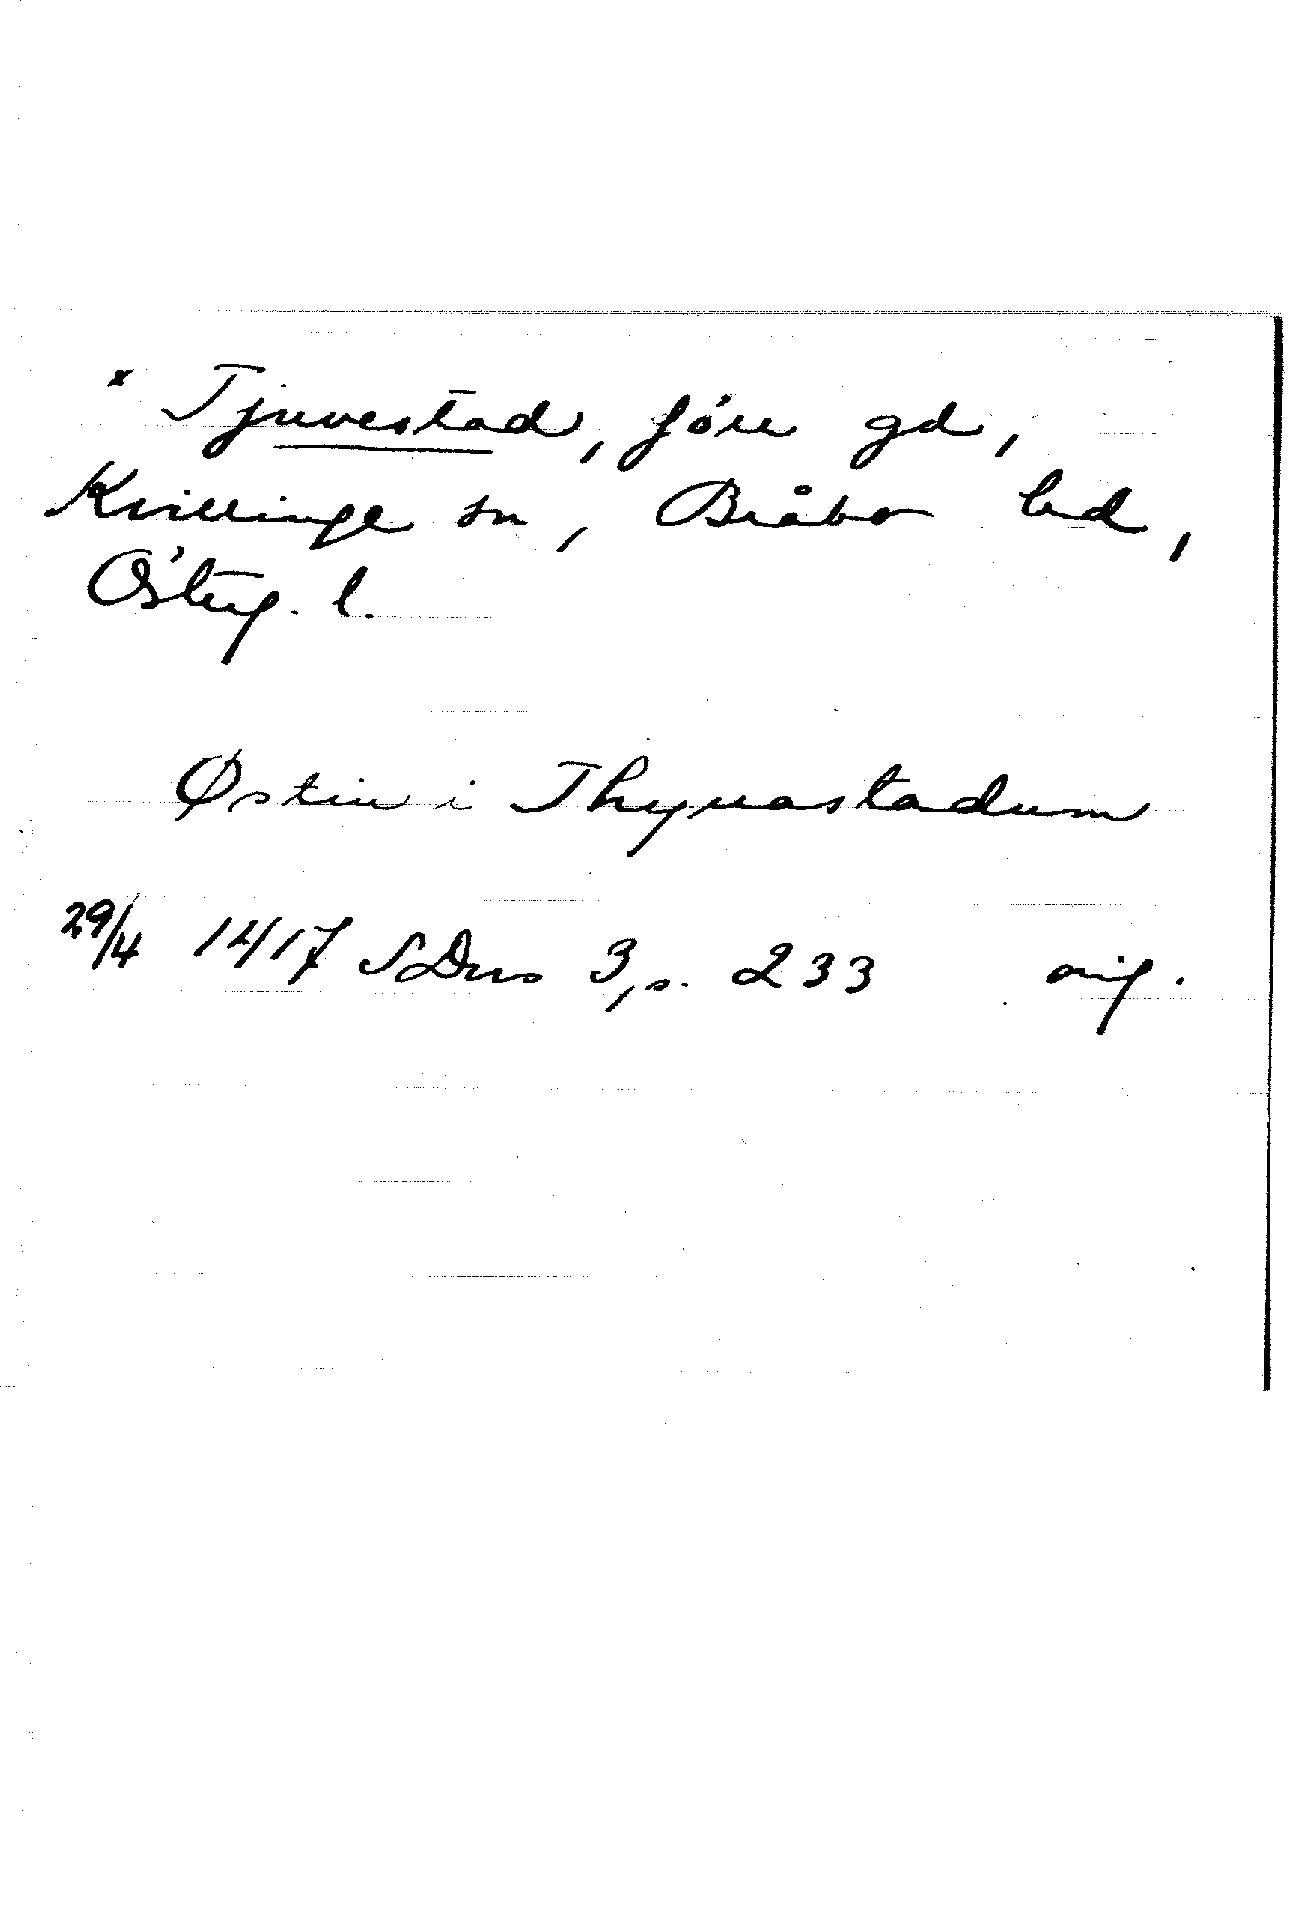 x Tjuvestad, förr gd,
Kvillinge sn, Bråbo hd,
Österg. l.
Østen i Thyuastadum
29/4 1417 SDns 3, s. 233 orig.